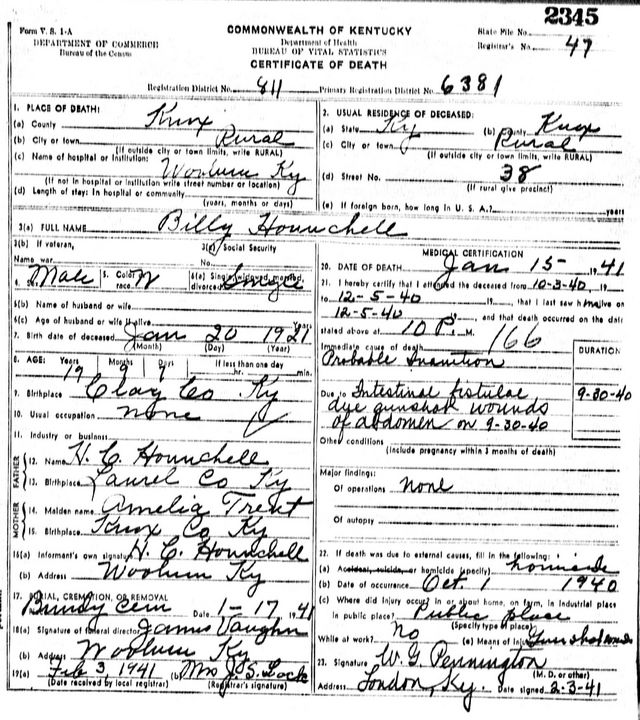 2345
Form V. S. 1-A
DEPARTMENT OF COMMERCE
Bureau of the Census
COMMONWEALTH OF KENTUCKY
Department of Health
BUREAU OF VITAL STATISTICS
CERTIFICATE OF DEATH
State File No.
Registrar's No. 47
Registration District No. 811 Primary Registration District No. 6381
1. PLACE OF DEATH:
(a) County Knox
(b) City or town Rural
(If outside city or town limits, write RURAL)
(c) Name of hospital or institution: Woolum Ky
(If not in hospital or institution write street number or location)
(d) Length of stay: In hospital or community
(years, months or days)
2. USUAL RESIDENCE OF DECEASED:
(a) State Ky (b) County Knox
(c) City or town Rural
(If outside city or town limits, write RURAL)
(d) Street No. 38
(If rural give precinct)
(e) If foreign born, how long in U. S. A.? years
3(a) FULL NAME Billy Hounchell
3(b) If veteran,
Name war
3(c) Social Security
No.
4. Sex Male 5. Color or race W 6(a) Single, widowed, married, divorced Single
6(b) Name of husband or wife
6(c) Age of husband or wife if alive Years
7. Birth date of deceased Jan 20 1921
(Month) (Day) (Year)
8. AGE: Years Months Days If less than one day
19 hr. min.
9. Birthplace Clay Co Ky
10. Usual occupation none
11. Industry or business
FATHER
12. Name H. C. Hounchell
13. Birthplace Laurel Co Ky
MOTHER
14. Maiden name Amelia Trent
15. Birthplace Knox Co Ky
16(a) Informant's own signature H. C. Hounchell
(b) Address Woolum Ky
17. BURIAL, CREMATION, OR REMOVAL
Bundy Cem Date 1-17 1941
18(a) Signature of funeral director James Vaughn
(b) Address Woolum Ky
19(a) Feb 3, 1941 (b) Mrs J. S. Lock
(Date received by local registrar) (Registrar's signature)
MEDICAL CERTIFICATION
20. DATE OF DEATH Jan 15- 1941
21. I hereby certify that I attended the deceased from 10-3-40
to 12-5-40 19 , that I last saw him alive on
12-5-40 , and that death occurred on the date
stated above at 10 P. M. 166
Immediate cause of death
Probable Inanition
DURATION
Due to Intestinal fistulae 9-30-40
due gunshot wounds
of abdomen on 9-30-40
Other conditions
(Include pregnancy within 3 months of death)
Major findings:
Of operations None
Of autopsy
22. If death was due to external causes, fill in the following:
(a) Accident, suicide, or homicide (specify) homicide
(b) Date of occurrence Oct 1 1940
(c) Where did injury occur in or about home, on farm, in industrial place
in public place? Public place
(Specify type of place)
While at work? No (e) Means of Injury Gunshot wounds
23. Signature W. G. Pennington
(M. D. or other)
Address London, Ky. Date signed 2-3-41